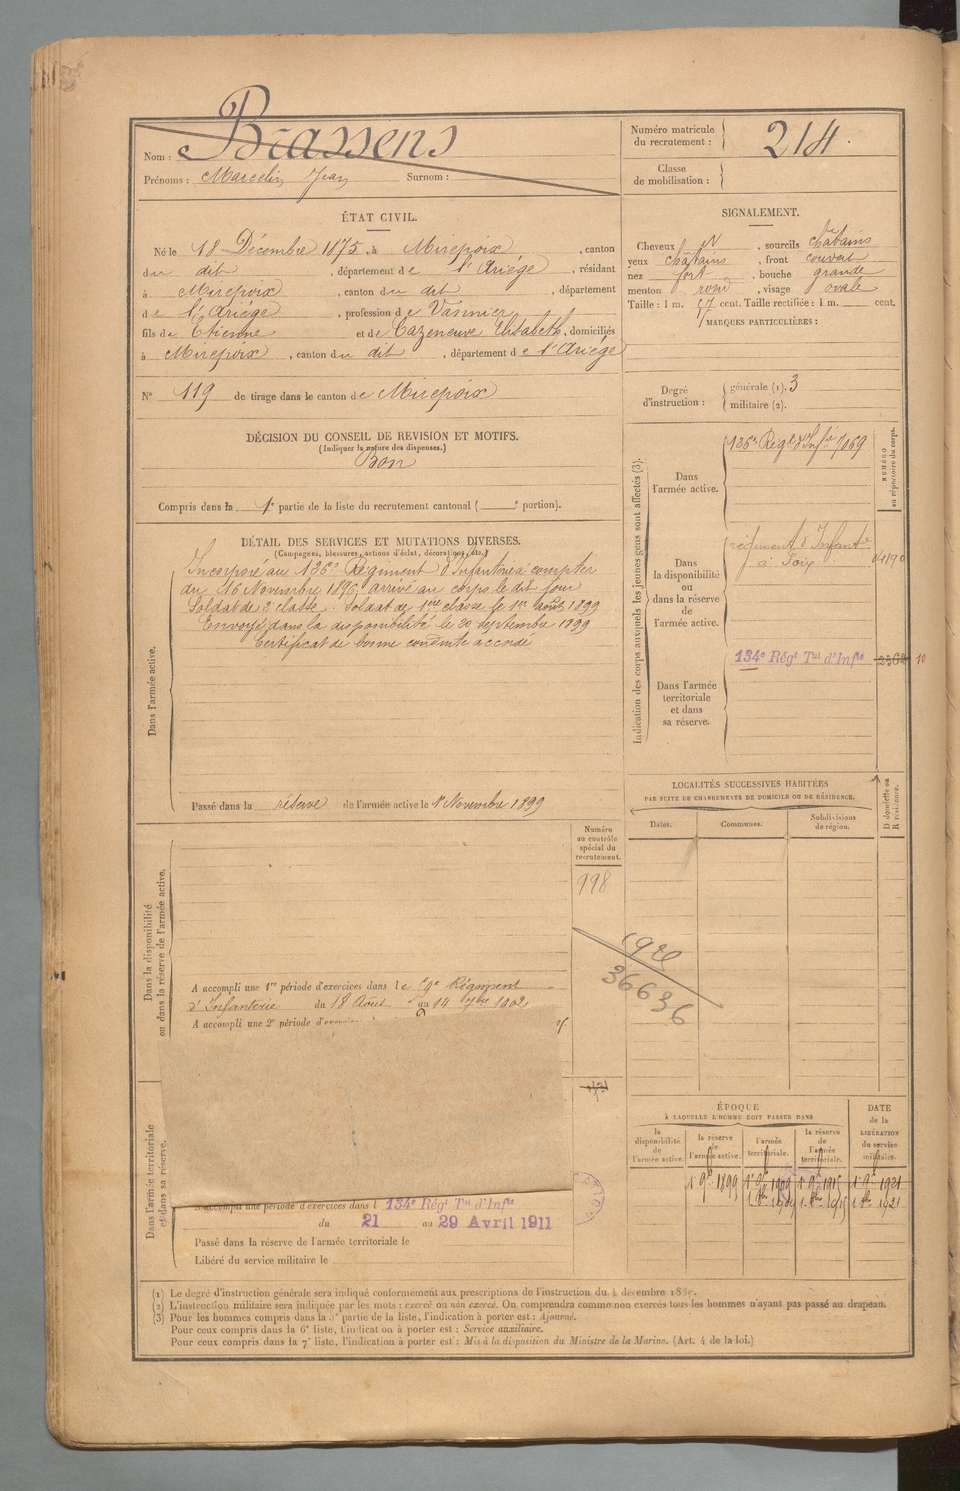 Nom : Brassens
Prénoms : Marcelin Jean Surnom :
Numéro matricule du recrutement : 214
Classe de mobilisation :
ÉTAT CIVIL.
Né le 18 Décembre 1875, à Mirepoix, canton
du dit, département de l'Ariège, résidant
à Mirepoix, canton du dit, département
de l'Ariège, profession de Vannier
fils de Etienne et de Cazeneuve Elisabeth, domiciliés
à Mirepoix, canton du dit, département de l'Ariège
N° 119 de tirage dans le canton de Mirepoix
SIGNALEMENT.
Cheveux N, sourcils châtains
yeux chatains, front couvert
nez fort, bouche grande
menton rond, visage ovale
Taille : 1 m. 57 cent. Taille rectifiée : 1 m. cent.
MARQUES PARTICULIÈRES :
Degré d'instruction :
générale (1). 3
militaire (2).
DÉCISION DU CONSEIL DE REVISION ET MOTIFS.
(Indiquer la nature des dispenses.)
Bon
Compris dans la 1e partie de la liste du recrutement cantonal ( e portion).
DÉTAIL DES SERVICES ET MUTATIONS DIVERSES.
(Campagnes, blessures, actions d'éclat, décorations, etc.)
Dans l'armée active.
Incorporé au 136e Régiment d'Infanterie à compter
du 16 Novembre 1896, arrivé au corps le dit jour
Soldat de 2e classe. Soldat de 1ère classe le 1er août 1899
Envoyé dans la disponibilité le 20 septembre 1899
Certificat de bonne conduite accordé
Passé dans la réserve de l'armée active le 1er Novembre 1899
Indication des corps auxquels les jeunes gens sont affectés (3).
NUMÉRO au répertoire du corps.
Dans l'armée active.
136e Régt d'Infie 7069
Dans la disponibilité ou dans la réserve de l'armée active.
régiment d'Infante
à Foix
Dans l'armée territoriale et dans sa réserve.
134e Régt Tal d'Infie 2362 10
LOCALITÉS SUCCESSIVES HABITÉES
PAR SUITE DE CHANGEMENTS DE DOMICILE OU DE RÉSIDENCE.
Dates.
Communes.
Subdivisions de région.
D domicile ou R résidence.
Numéro au contrôle spécial du recrutement.
998
36636
Dans la disponibilité ou dans la réserve de l'armée active.
A accompli une 1re période d'exercices dans le 59e Régiment
d'Infanterie du 18 Août au 14 7bre 1902
A accompli une 2e période d'exercices
Dans l'armée territoriale et dans sa réserve.
A accompli une période d'exercices dans l 134e Régt Tal d'Infie
du 21 au 29 Avril 1911
Passé dans la réserve de l'armée territoriale le
Libéré du service militaire le
ÉPOQUE
À LAQUELLE L'HOMME DOIT PASSER DANS
DATE de la LIBÉRATION du service militaire.
la disponibilité de l'armée active.
la réserve de l'armée active.
l'armée territoriale.
la réserve de l'armée territoriale.
1er 9bre 1899 1er 9bre 1909 1er 9bre 1915 1er 9bre 1921
1er 8bre 1909 1er 8bre 1915 1er 8bre 1921
(1) Le degré d'instruction générale sera indiqué conformément aux prescriptions de l'instruction du 4 décembre 1889.
(2) L'instruction militaire sera indiquée par les mots : exercé ou non exercé. On comprendra comme non exercés tous les hommes n'ayant pas passé au drapeau.
(3) Pour les hommes compris dans la 5e partie de la liste, l'indication à porter est : Ajourné.
Pour ceux compris dans la 6e liste, l'indication à porter est : Service auxiliaire.
Pour ceux compris dans la 7e liste, l'indication à porter est : Mis à la disposition du Ministre de la Marine. (Art. 4 de la loi.)